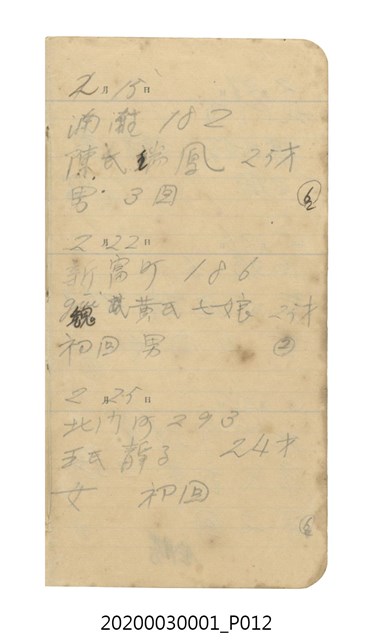 2月15日
湳雅 182
陳氏瑞鳳 25才
男 3回
2月22日
新富町 186
魏黃氏七娘 25才
初回 男
2月25日
北門町293
王氏 子 24才
女 初回
20200030001_P012